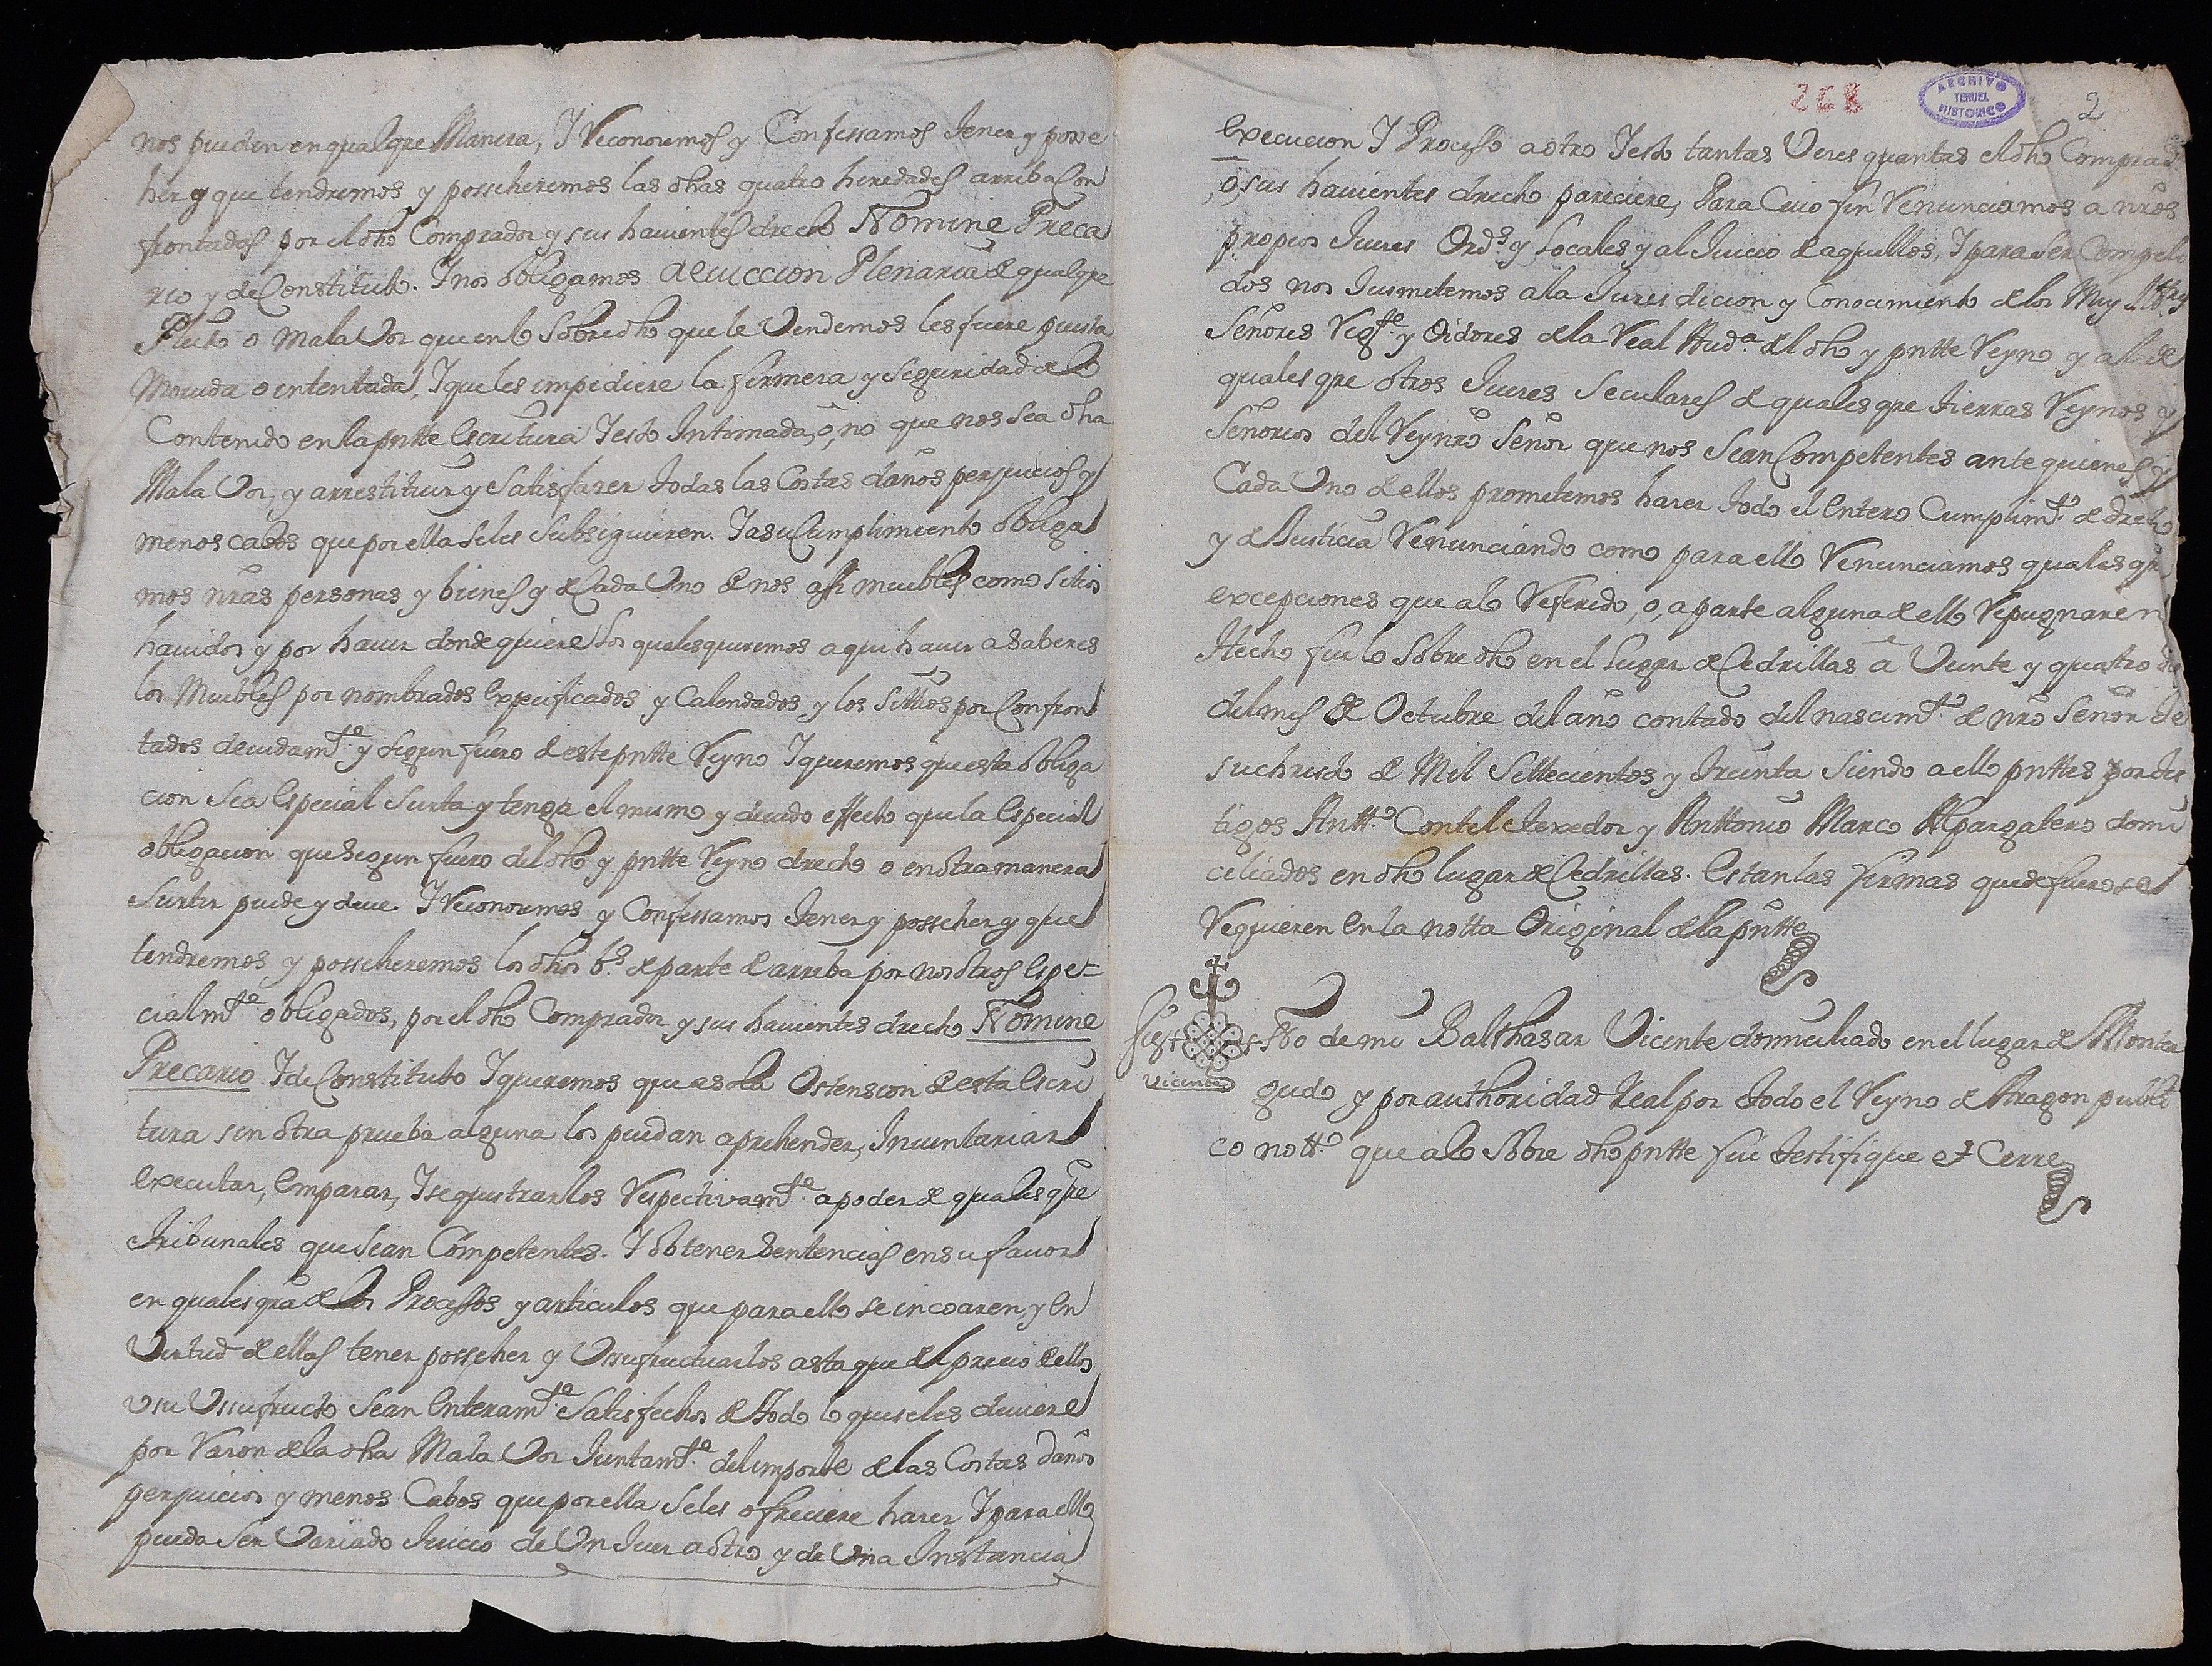 nos pueden en qualqre Manera, Y Reconocemos y Confessamos tener y posse
her y que tendremos y posseheremos las dhas quatro heredades arriba Con
frontadas por el dho Comprador y sus havientes drecho Nomine Preca
rio y de Constituto. Y nos obligamos a eviccion Plenaria de qualqre
Pleito o mala Voz que en lo Sobredho que le Vendemos les fuere puesta
Movida o intentada, Y que les impidiere la firmeza y Seguridad de lo
Contenido en la pntte Escritura Y esto Intimada, o, no que nos sea dha
Mala Voz, y a rrestituir y Satisfazer todas las Costas daños perjuicios y
menos cabos que por ella se les Subsiguieren. Y a su Cumplimiento obliga
mos nras personas y bienes y de Cada Uno de nos assi muebles como sitios
havidos y por haver donde quiere Los quales queremos aqui haver a saber es
los Muebles por nombrados expecificados y Calendados, y los Sittios por Confron
tados devidamte. y segun fuero de este pntte Reyno Y queremos que esta obliga
cion sea Especial Surta y tenga el mismo y devido effecto que la Especial
obligacion que segun fuero del dho y pntte Reyno drecho o en otra manera
Surtir puede y deve. Y Reconocemos y Confessamos tener y posseher y que
tendremos y posseheremos los dhos bs. de parte de arriba por nosotros Espe=
cialmte. obligados, por el dho Comprador y sus havientes drecho Nomine
Precario Y de Constituto Y queremos que a sola Ostension de esta Escri
tura sin otra prueba alguna los puedan aprehender, Inventariar
executar, Emparar, Y sequestrarlos Respectivamte. a poder de qualesqre
Tribunales que sean Competentes. Y obtener Sentencias en su favor
en qualesqra de los Processos y articulos que para ello se incoaren y En
Virtud de ellas tener posseher y Ussufructuarlos asta que del precio de ellos
u su Ussufructo Sean Enteramte. Satisfechos de todo lo que se les deviere
por Razon de la dha Mala Voz Juntamte. del importe de las Costas daños
perjuicios y menos Cabos que por ella se les ofreciere hazer Y para ello
pueda ser Variado Juicio de Un Juez a otro y de Una Instancia
268
ARCHIVO HISTORICO TERUEL
2
execucion Y Processo a otro Y esto tantas Veces quantas el dho Comprador
, o, sus havientes drecho pareciere, Para Cuio fin Renunciamos a nros
propios Jueces Ords. y Locales y al Juicio de aquellos, Y para ser Compeli
dos nos Jusmetemos a la Jurisdicion y Conocimiento de los Muy Illtres
Señores Regte. y Oidores de la Real Auda. del dho y pntte Reyno y al de
qualesqre otros Jueces Seculares de qualesqre tierras Reynos y
Señorios del Rey nro Señor que nos Sean Competentes ante quienes y
Cada Uno de ellos prometemos hazer todo el Entero Cumplimto. de drecho
y de Justicia Renunciando como para ello Renunciamos qualesqre
excepciones que a lo Referido, o, a parte alguna de ello Repugnaren
Hecho fue lo Sobredho en el Lugar de Cedrillas à Veinte y quatro dias
del mes de Octubre del año contado del nascimto. de nro Señor Je
suchristo de Mil Settecientos y treinta Siendo a ello pnttes por tes
tigos Antto. Contel texedor y Anttonio Marco Alpargatero domi
ciliados en dho lugar de Cedrillas. Estan las firmas que de fuero se
Requieren En la notta Original de la pntte
Sig+no de mi Balthasar Vicente domiciliado en el lugar de Monta
Vicente
gudo y por authoridad Real por todo el Reyno de Aragon publi
co notto. que a lo Sobre dho pntte fui testifique et Cerre